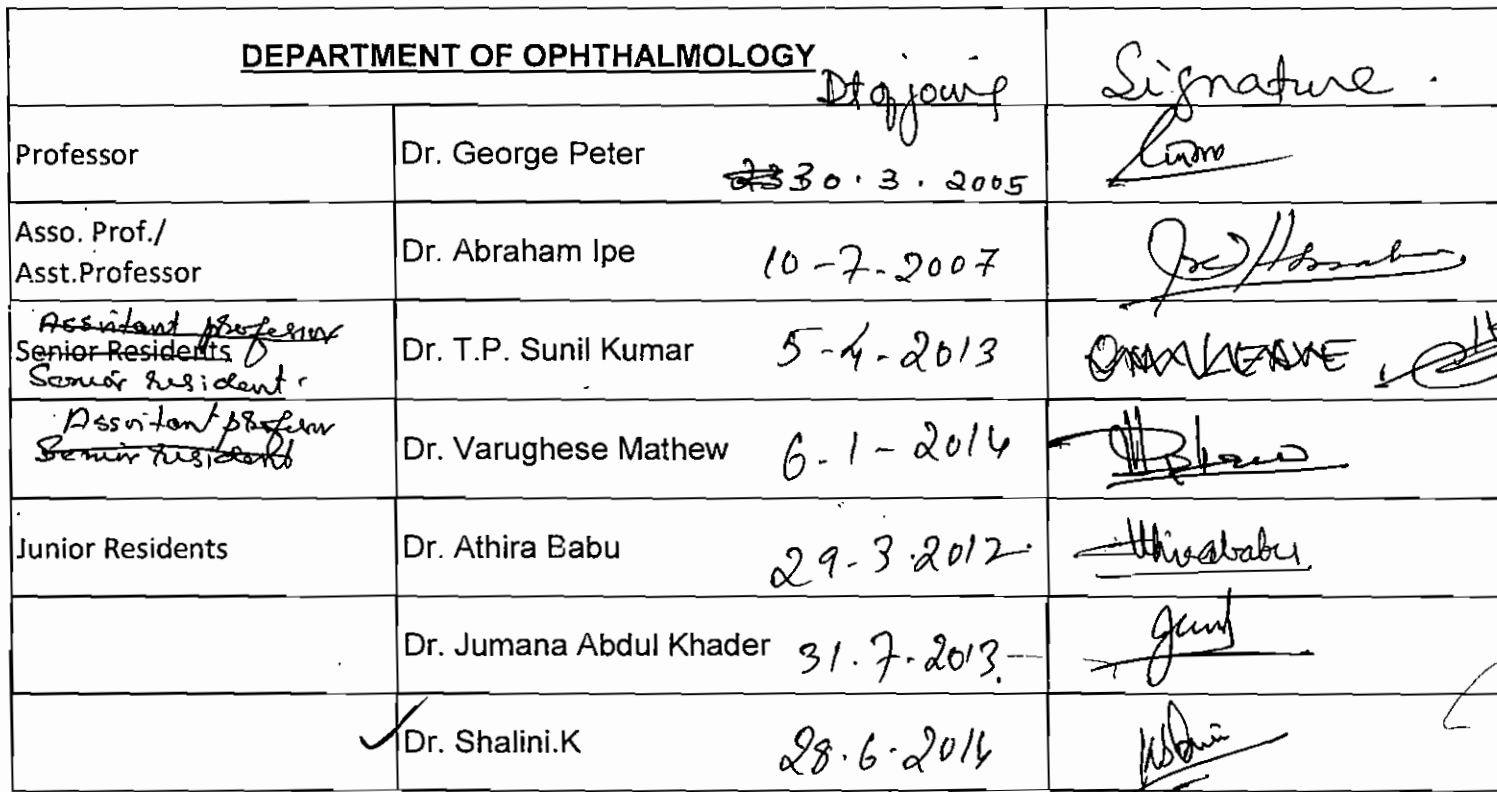 DEPARTMENT OF OPHTHALMOLOGY
Dt of joing Signature .
Professor Dr. George Peter 30.3.2005
Asso. Prof./
Asst.Professor Dr. Abraham Ipe 10-7-2007
Assistant professor
Senior Residents Dr. T.P. Sunil Kumar 5-4-2013 ON LEAVE
Senior resident
Assistant professor
Senior resident Dr. Varughese Mathew 6-1-2014
Junior Residents Dr. Athira Babu 29-3-2012 Athirababu
Dr. Jumana Abdul Khader 31.7.2013
Dr. Shalini.K 28.6.2014